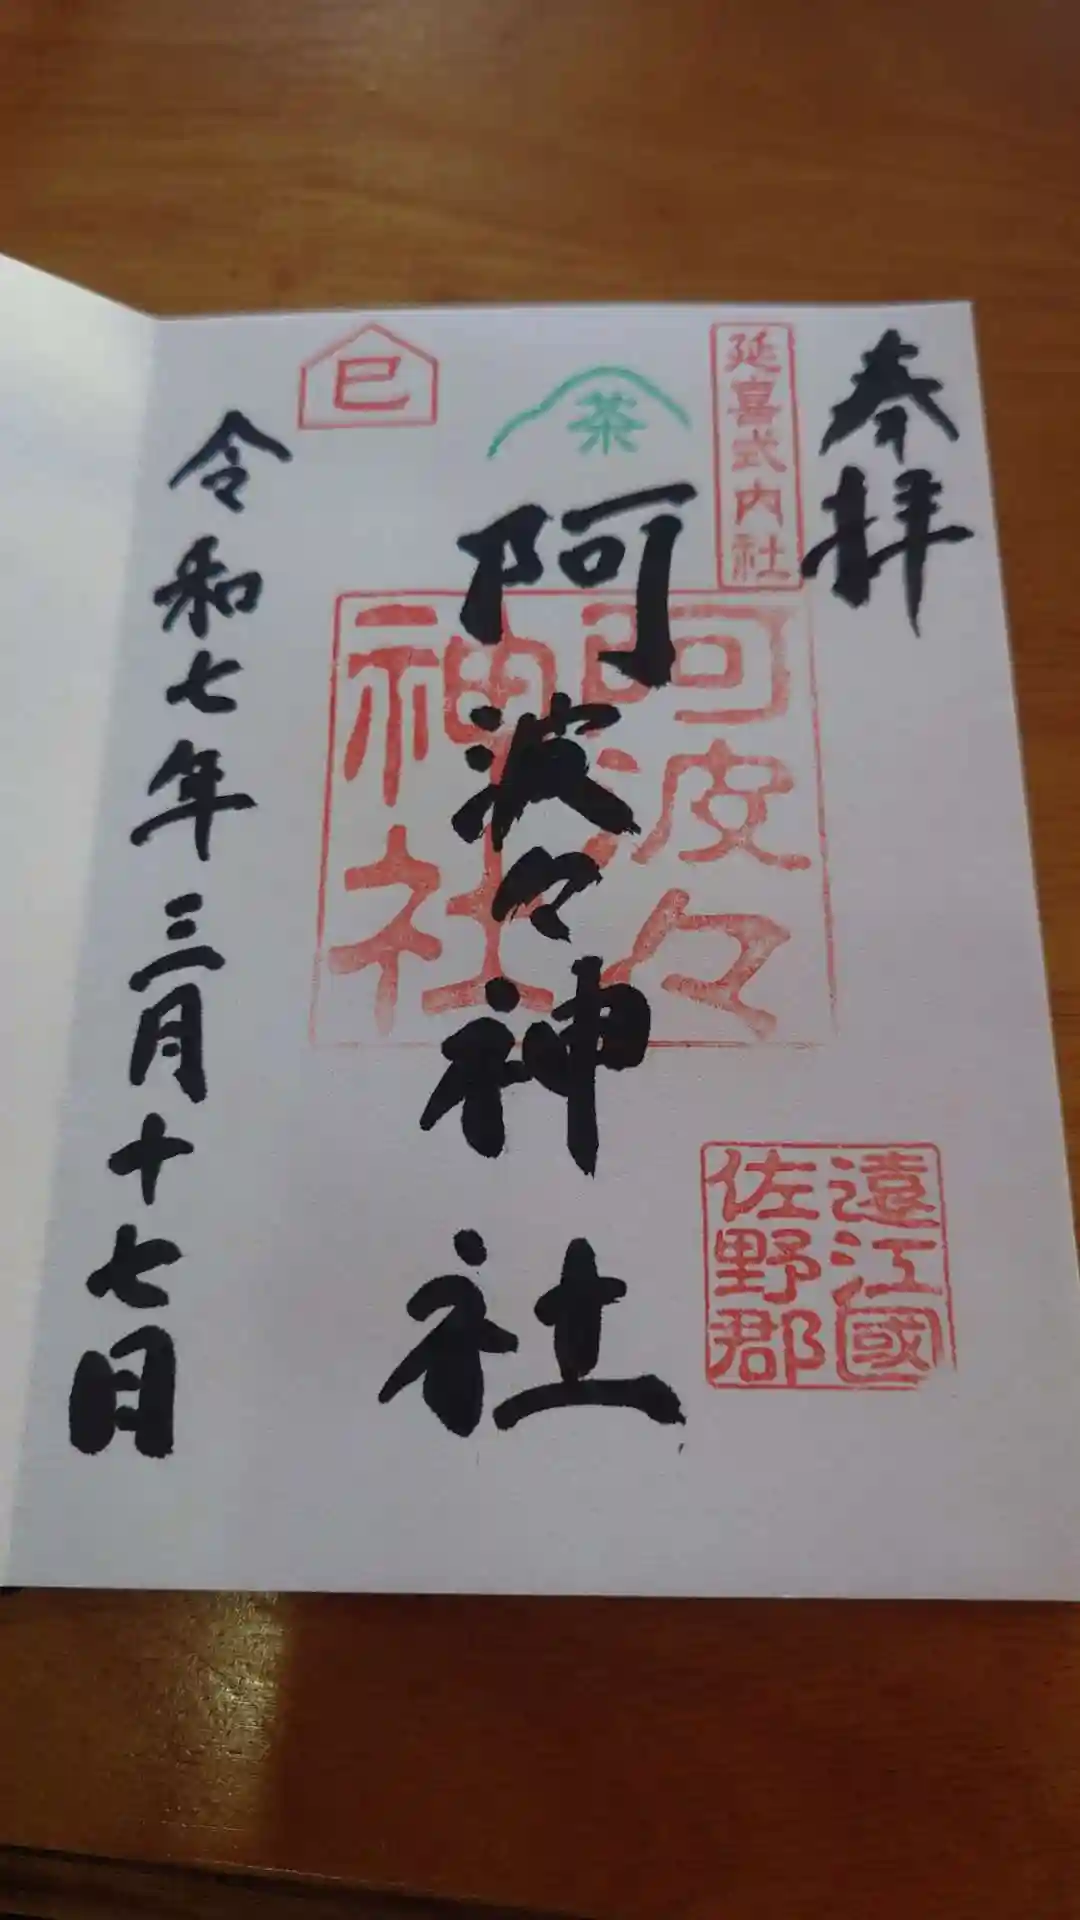 奉拝
延喜式内社
遠江國
佐野郡
茶
阿波々神社
阿波々
神社
巳
令和七年三月十七日